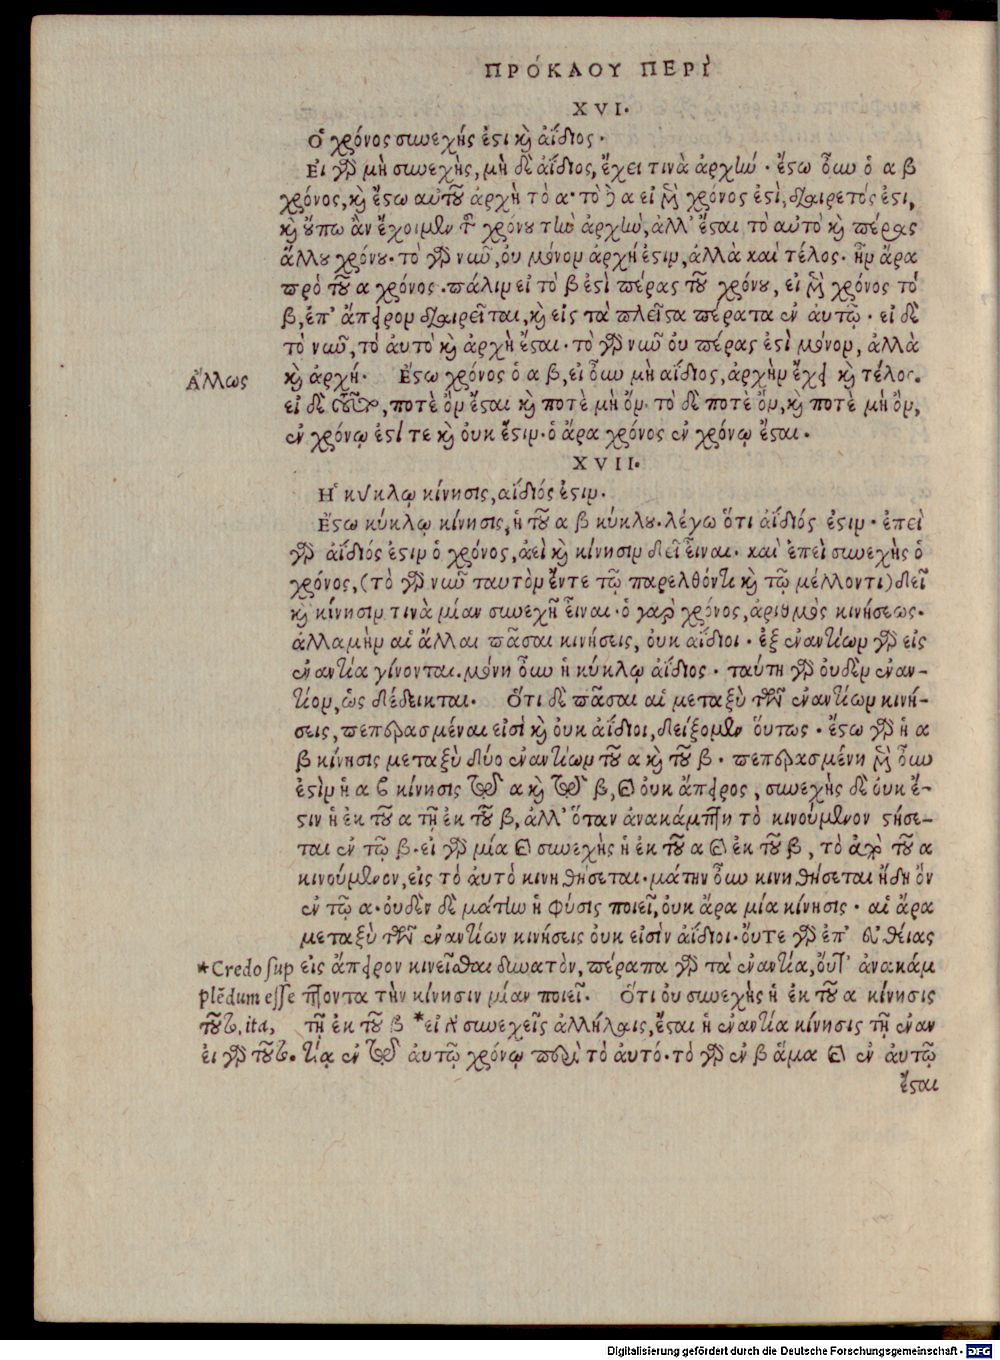 ΠΡΌΚΛΟΥ ΠΕΡῚ
XVI.
Ὁ χρόνος συνεχής ἐστι καὶ ἀΐδιος.
Εἰ γὰρ μὴ συνεχὴς, μὴ δὲ ἀΐδιος, ἔχει τινὰ ἀρχήν. ἔστω οὖν ὁ α β
χρόνος, καὶ ἔστω αὐτοῦ ἀρχὴ τὸ α. τὸ δὲ α εἰ μὲν χρόνος ἐστὶ, διαιρετός ἐστι,
καὶ οὔπω ἂν ἔχοιμεν τοῦ χρόνου τὴν ἀρχὴν, ἀλλ' ἔσται τὸ αὐτὸ καὶ πέρας
ἄλλου χρόνου. τὸ γὰρ νῦν, οὐ μόνον ἀρχή ἐστιν, ἀλλὰ καὶ τέλος. ἦν ἄρα
πρὸ τοῦ α χρόνος. πάλιν εἰ τὸ β ἐστὶ πέρας τοῦ χρόνου, εἰ μὲν χρόνος τὸ
β, ἐπ' ἄπειρον διαιρεῖται, καὶ εἰς τὰ πλεῖστα πέρατα ἐν ἀυτῷ. εἰ δὲ
τὸ νῦν, τὸ ἀυτὸ καὶ ἀρχὴ ἔσται. τὸ γὰρ νῦν οὐ πέρας ἐστὶ μόνον, ἀλλὰ
Ἄλλως καὶ ἀρχή. Ἔστω χρόνος ὁ α β, εἰ οὖν μὴ αΐδιος, ἀρχὴν ἔχει καὶ τέλος.
εἰ δὲ τοῦτο, ποτὲ ὂν ἔσται καὶ ποτὲ μὴ ὄν. τὸ δὲ ποτὲ ὂν, καὶ ποτὲ μὴ ὂν,
ἐν χρόνῳ ἐστί τε καὶ ὀυκ ἔστιν. ὁ ἄρα χρόνος ἐν χρόνῳ ἔσται.
XVII.
Ἡ κύκλῳ κίνησις, αΐδιός ἐστιν.
Ἔστω κύκλῳ κίνησις, ἡ τοῦ α β κύκλου. λέγω ὅτι ἀΐδιός ἐστιν. ἐπεὶ
γὰρ ἀΐδιός ἐστιν ὁ χρόνος, ἀεὶ καὶ κίνησιν δεῖ εἶναι. καὶ ἐπεὶ συνεχὴς ὁ
χρόνος, (τὸ γὰρ νῦν ταυτὸν ἔντε τῷ παρελθόντι καὶ τῷ μέλλοντι) δεῖ
καὶ κίνησιν τινὰ μίαν συνεχῆ εἶναι. ὁ γὰρ χρόνος, ἀριθμὸς κινήσεως.
ἀλλαμὴν αἱ ἄλλαι πᾶσαι κινήσεις, ὀυκ αΐδιοι. ἐξ ἐναντίων γὰρ εἰς
ἐναντία γίνονται. μόνη οὖν ἡ κύκλῳ ἀΐδιος. ταύτη γὰρ ὀυδὲν ἐναν-
τίον, ὡς δέδεικται. Ὅτι δὲ πᾶσαι αἱ μεταξὺ τῶν ἐναντίων κινή-
σεις, πεπερασμέναι εἰσὶ καὶ ὀυκ ἀΐδιοι, δείξομεν ὅυτως. ἔστω γὰρ ἡ α
β κίνησις μεταξὺ δύο ἐναντίων τοῦ α καὶ τοῦ β. πεπερασμένη μὲν οὖν
ἐστὶν ἡ α β κίνησις τοῦ α καὶ τοῦ β, καὶ ὀυκ ἄπειρος, συνεχὴς δὲ ὀυκ ἔ-
στιν ἡ ἐκ τοῦ α τῇ ἐκ τοῦ β, ἀλλ' ὅταν ἀνακάμπτῃ τὸ κινούμενον στήσε-
ται ἐν τῷ β. εἰ γὰρ μία καὶ συνεχὴς ἡ ἐκ τοῦ α καὶ ἐκ τοῦ β, τὸ ἀπὸ τοῦ α
κινούμενον, εἰς τὸ ἀυτὸ κινηθήσεται. μάτην οὖν κινηθήσεται ἤδη ὂν
ἐν τῷ α. ὀυδὲν δὲ μάτην ἡ φύσις ποιεῖ, ὀυκ ἄρα μία κίνησις. αἱ ἄρα
μεταξὺ τῶν ἐναντίων κινήσεις ὀυκ εἰσὶν ἀΐδιοι. ὄυτε γὰρ ἐπ' εὐθείας
*Credo sup εἰς ἄπειρον κινεῖσθαι δυνατὸν, πέραπα γὰρ τὰ ἐναντία, ὄυτ' ἀνακάμ
plēdum esse πτοντα τὴν κίνησιν μίαν ποιεῖ. Ὅτι ὀυ συνεχὴς ἡ ἐκ τοῦ α κίνησις
τοῦ β, ita, τῇ ἐκ τοῦ β *εἰ γὰρ συνεχεῖς ἀλλήλαις, ἔσται ἡ ἐναντία κίνησις τῇ ἐναν
εἰ γὰρ τοῦ β. τίᾳ ἐν τῷ ἀυτῷ χρόνῳ περὶ τὸ ἀυτό. τὸ γὰρ ἐν β ἅμα καὶ ἐν ἀυτῷ
ἔσται
Digitalisierung gefördert durch die Deutsche Forschungsgemeinschaft - DFG